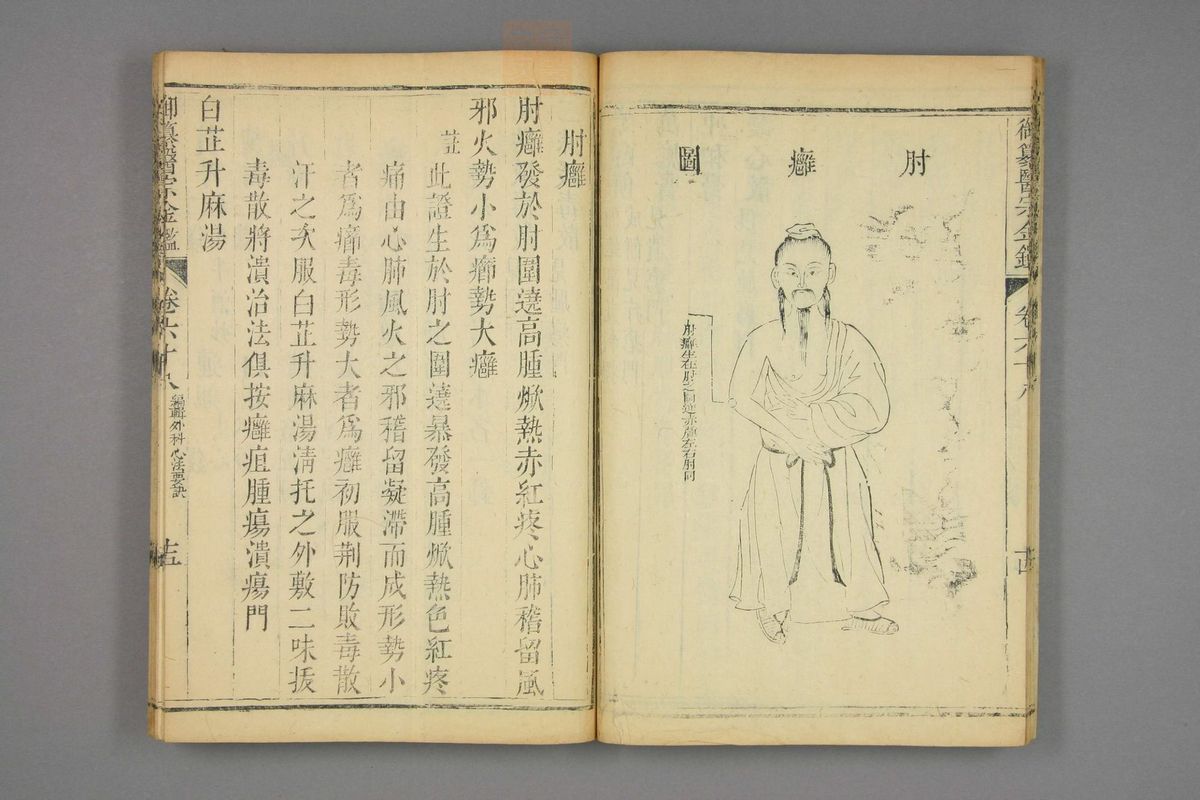 御纂醫宗金鑑 卷六十八 十四
肘癰圖
肘癰生在肘之圍遶赤腫左右肘同
肘癰
肘癰發於肘圍遶高腫焮熱赤紅疼心肺稽留風
邪火勢小為癤勢大癰
註此證生於肘之圍遶暴發高腫焮熱色紅疼
痛由心肺風火之邪稽留凝滯而成形勢小
者為癤毒形勢大者為癰初服荆防敗毒散
汗之次服白芷升麻湯清托之外敷二味拔
毒散將潰治法俱按癰疽腫瘍潰瘍門
白芷升麻湯
御纂醫宗金鑑 卷六十八 編輯外科心法要訣 十五